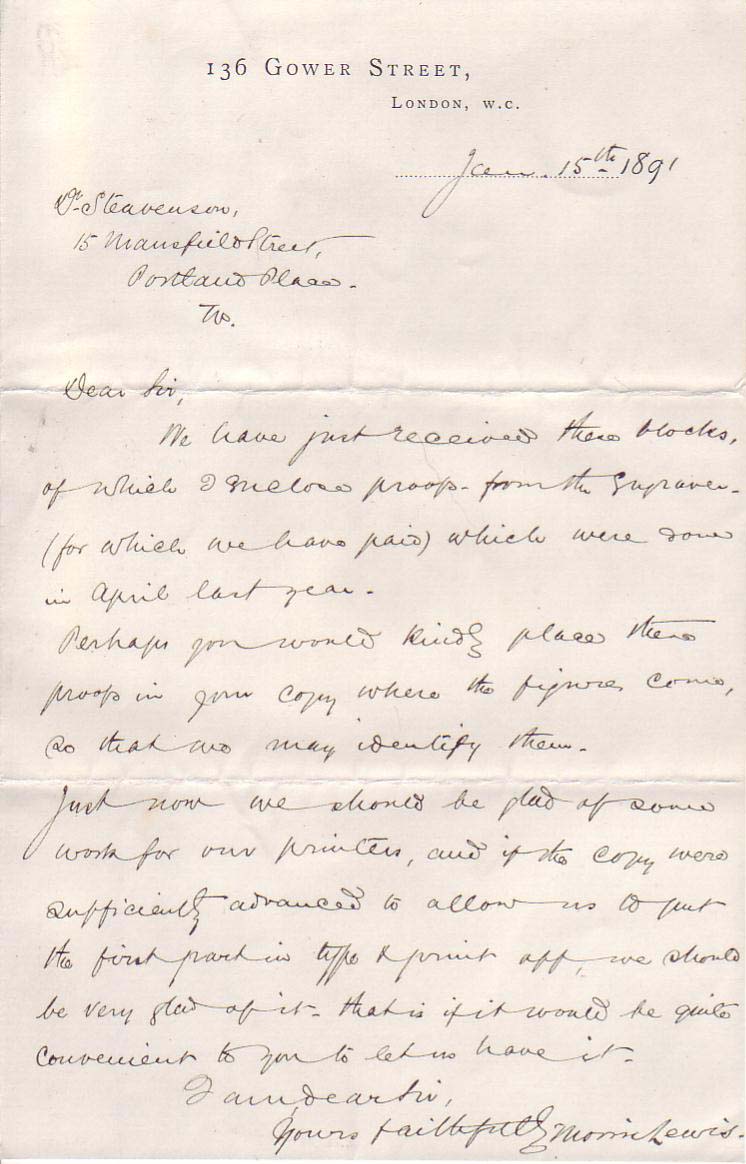 136 GOWER STREET,
LONDON, W.C.
Jan. 15th 1891
Dr. Steavenson,
15 Mansfield Street,
Portland Place.
W.
Dear Sir,
We have just received these blocks,
of which I enclose proofs - from the Engraver -
(for which we have paid) which were done
in April last year.
Perhaps you would kindly place these
proofs in your copy where the figures come,
so that we may identify them.
Just now we should be glad of some
work for our printers, and if the copy were
sufficiently advanced to allow us to put
the first part in type & print off, we should
be very glad of it - that is if it would be quite
convenient to you to let us have it.
I am, dear Sir,
Yours faithfully Morris Lewis.